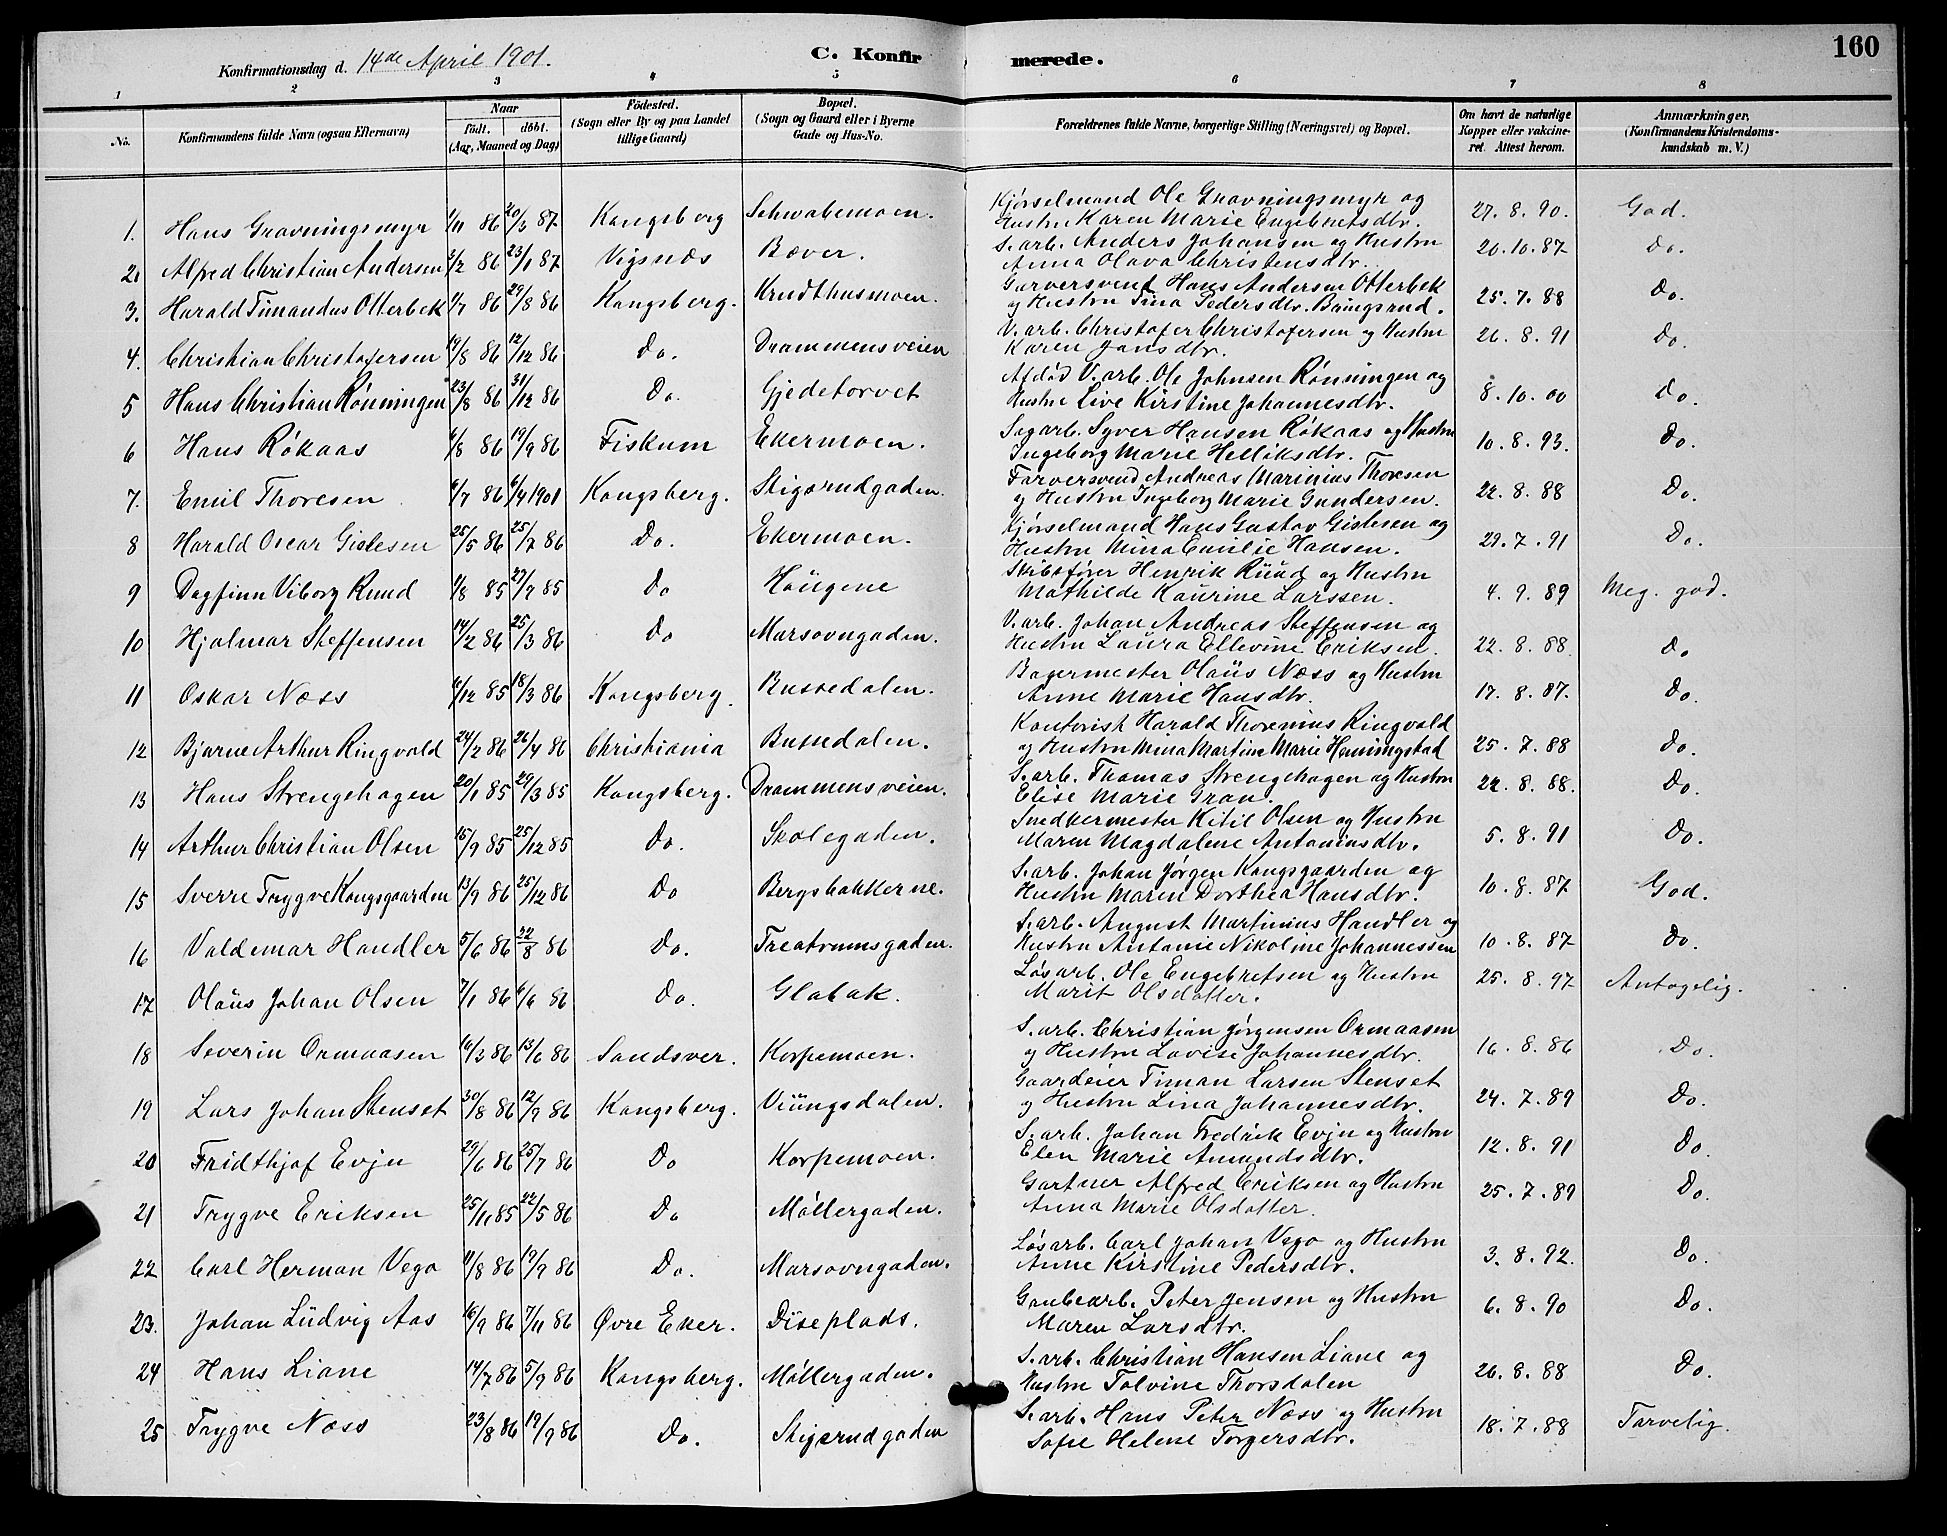 160
Konfirmationsdag d. 14de April 1901. C. Konfirmerede.
1 2 3 4 5 6 7 8
No. Konfirmandens fulde Navn (ogsaa Efternavn) Naar født. døbt. (Aar, Maaned og Dag) Fødested. (Sogn eller By og paa Landet tillige Gaard) Bopæl. (Sogn og Gaard eller i Byerne Gade og Hus-No. Forældrenes fulde Navne, borgerlige Stilling (Næringsvei) og Bopæl. Om havt de naturlige Kopper eller vakcineret. Attest herom. Anmærkninger. (Konfirmandens Kristendomskundskab m. V.)
1. Hans Gravningsmyr 1/11 86 20/3 87 Kongsberg Schwabemoen. Kjørselmand Ole Gravningsmyr og Hustru Karen Marie Engebretsdtr. 27.8.90. God.
2. Alfred Christian Andersen 2/2 86 23/1 87 Vigsnæs Bæver. S.arb. Anders Johansen og Hustru Anna Olava Christensdtr. 20.10.87 Do.
3. Harald Timandus Otterbek 1/7 86 29/8 86 Kongsberg. Krudthusmoen. Garversvend Hans Andersen Otterbek og Hustru Tina Pedersdtr. Bningsrud. 25.7.88 Do.
4. Christian Christofersen 14/8 86 12/12 86 Do. Drammensveien V.arb. Christofer Christofersen og Hustru Karen Jansdtr. 26.8.91 Do.
5 Hans Christian Rønningen 23/8 86 31/12 86 Do. Gjedetorvet Afdød V.arb. Ole Johnsen Rønningen og Hustru Live Kirstine Johannesdtr. 8.10.00 Do.
6 Hans Røkaas 6/8 86 19/9 86 Fiskum Ekermoen. Sagarb. Syver Hansen Røkaas og Hustru Ingeborg Marie Helliksdtr. 10.8.93. Do.
7. Emil Thoresen 6/7 86 6/4 1901 Kongsberg. Stigerudgaden. Farversvend Andreas Marinius Thoresen og Hustru Ingeborg Marie Gundersen. 22.8.88 Do.
8 Harald Oscar Gislesen 25/5 86 25/7 86 Do. Ekermoen. Kjørselmand Hans Gustav Gislesen og Hustru Mina Emilie Hansen. 29.7.91 Do.
9 Dagfinn Viborg Ruud 1/8 85 27/7 85 Do Haügene Skibsfører Henrik Rüüd og Hustru Mathilde Kaurine Larssen. 4.9.89 Meg. god.
10 Hjalmar Steffensen 14/2 86 25/3 86 Do Marsovngaden. V.arb. Johan Andreas Steffensen og Hustru Laura Ellevine Eriksen. 22.8.88. Do
11 Oskar Næss 6/12 85 18/3 86 Kongsberg. Bussedalen. Bagermester Olaüs Næss og Hustru Anne Marie Hansdtr. 17.8.87. Do.
12 Bjarne Arthur Ringvold 24/2 86 26/4 86 Christiania Bussedalen. Kontorist Harald Thorenius Ringvold og Hustru Mina Martine Marie Henningstad 25.7.88 Do.
13 Hans Strengehagen 20/1 85 29/3 85 Kongsberg. Drammensveien. S.arb. Thomas Strengehagen og Hustru Elise Marie Gran. 22.8.88. Do.
14 Arthur Christian Olsen 15/9 85 25/12 85 Do. Skolegaden. Snedkermester Kitil Olsen og Hustru Maren Magdalene Antoniusdtr. 5.8.91 Do.
15 Sverre Trygve Kongsgaarden 13/9 86 25/12 86 Do Bergsbakkerne. S.arb. Johan Jørgen Kongsgaarden og Hustru Maren Dorthea Hansdtr. 10.8.87 God.
16 Valdemar Handler 5/6 86 22/8 86 Do. Treatrumsgaden. S.arb. August Martinius Handler og Hustru Antonie Nikoline Johannessen 10.8.87 Do.
17 Olaüs Johan Olsen 7/1 86 6/6 86 Do. Glabak. Løsarb. Ole Engebretsen og Hustru Marit Olsdatter. 25.8.97 Antagelig.
18 Severin Ormaasen 16/3 86 13/6 86 Sandsver. Korpemoen. S.arb. Christian Jørgensen Ormaasen og Hustru Lovise Johannesdtr. 16.8.86 Do.
19 Lars Johan Stenset 30/8 86 12/9 86 Kongsberg. Viüngsdalen. Gaardeier Timan Larsen Stenset og Hustru Lina Johannesdtr. 24.7.89 Do.
20 Fridthjof Evju 29/6 86 25/7 86 Do Korpemoen. S.arb. Johan Fredrik Evju og Hustru Elen Marie Amundsdtr. 12.8.91 Do.
21 Trygve Eriksen 25/11 85 22/5 86 Do Møllergaden. Gartner Alfred Eriksen og Hustru Anna Marie Olsdatter. 25.7.89 Do.
22 Carl Herman Vego 11/8 86 19/9 86 Do. Marsovngaden. Løsarb. Carl Johan Vego og Hustru Anne Kirstine Pedersdtr. 3.8.92. Do.
23. Johan Lüdvig Aas 16/9 86 7/11 86 Øvre Eker. Diseplads. Grubearb. Peter Jensen og Hustru Maren Larsdtr. 6.8.90 Do.
24 Hans Liane 14/7 86 5/9 86 Kongsberg. Møllergaden. S.arb. Christian Hansen Liane og Hustru Tolvine Thorsdalen 26.8.88 Do.
25 Trygve Næss 23/8 86 19/9 86 Do. Stigerudgaden S.arb. Hans Peter Næss og Hustru Sofie Helene Torgersdtr. 18.7.88 Tarvelig.